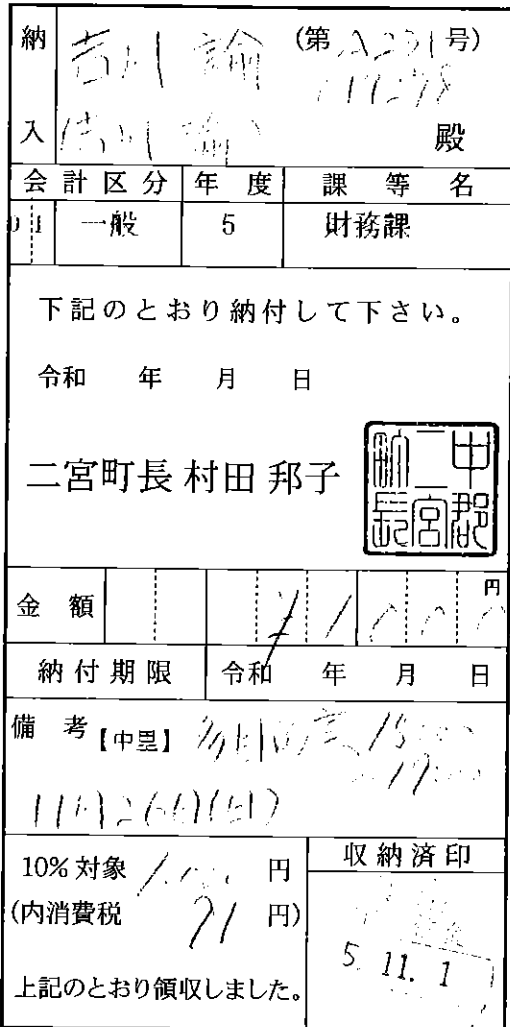 納入
吉川 諭 (第 A231号)
殿
会計区分 年度 課等名
01 一般 5 財務課
下記のとおり納付して下さい。
令和 年 月 日
二宮町長 村田 邦子
中郡二宮町長
金額 ¥1000円
納付期限 令和 年 月 日
備考【中里】
11月26日(日)
10%対象 1,000 円
(内消費税 91 円)
収納済印
5. 11. 1
上記のとおり領収しました。